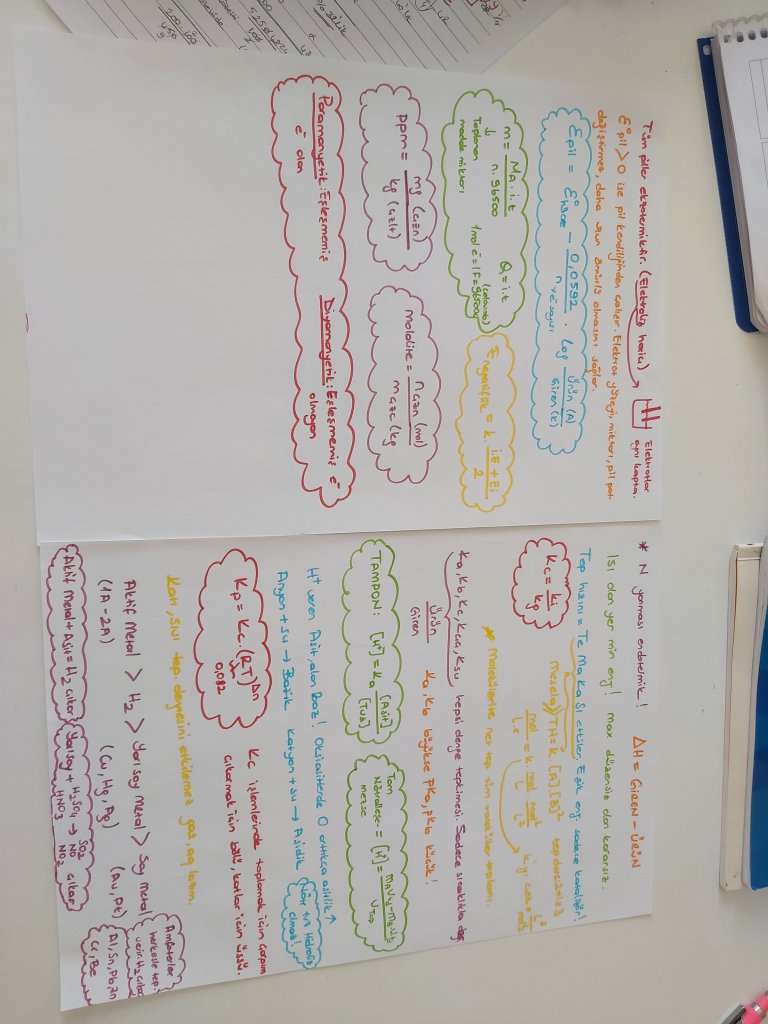 Tüm piller ekzotermiktir. (Elektroliz harici) → Elektrotlar aynı kapta.
E°pil > 0 ise pil kendiliğinden çalışır. Elektrot yüzeyi, miktarı, pil pot.
değiştirmez, daha uzun ömürlü olmasını sağlar.
Epil = E°hücre - 0,0592 / n → e sayısı . log Ürün (A) / Giren (K)
m = MA . i.t / n. 96500
↓
Toplanan madde miktarı
Q = i.t
(coloumb)
1 mol e = 1F = 96500
Enegatiflik = k. i.E + Ei / 2
ppm = mg (çözn) / kg (çözlt)
Molalite = n çözn (mol) / m çözc (kg
Paramanyetik: Eşleşmemiş
e⁻ olan
Diyamanyetik: Eşleşmemiş e⁻
olmayan
* N yanması endotermik! ΔH = GİREN - ÜRÜN
Isı olan yer min enj! max düzensiz olan kararsız.
Tep hızını = Te Ma Ka Sı etkiler. Eşik enj sadece katalizör!
Kc = ki / kg
Mesela) TH = k. [A] [B]² tep derc: 1+2=3
mol / L.s = k. mol / L mol² / L²
k'yi çek =
* Moleküleritede net tep tüm moleküller toplamı.
Ka, Kb, Kc, Kçç, Ksu hepsi denge tepkimesi. Sadece sıcaklıkla değ
Ürün / Giren
Ka, Kb büyükse pKa, pKb küçük!
TAMPON: [H⁺] = Ka [Asit] / [Tuz]
Tam Nötralleşen. mezse = [H⁺] = MaVa - MbVb / VTop
H⁺ veren Asit, alan baz! Oksiasitlerde O arttıkça asitlik ↑
Anyon + su → Bazik Katyon + su → Asidik
Nötr tuz Hidroliz olmaz!
Kp = Kc. (RT)^Δn
0,082
Kc işlemlerinde toplamak için çarpım
çıkarmak için bölü, katlar için üssü.
Katı, sıvı tep. dengesini etkilemez gaz, aq lazım.
Aktif Metal > H₂ > Yarı soy Metal > Soy Metal
(1A - 2A) (Cu, Hg, Ag) (Au, Pt)
Amfoterler herkesle tep. verir H₂ çıkar
Al, Sn, Pb, Zn
Cr, Be
Aktif Metal + Asit = H₂ çıkar
Yarısoy + H₂SO₄ → SO₂
HNO₃ NO
NO₂ çıkar